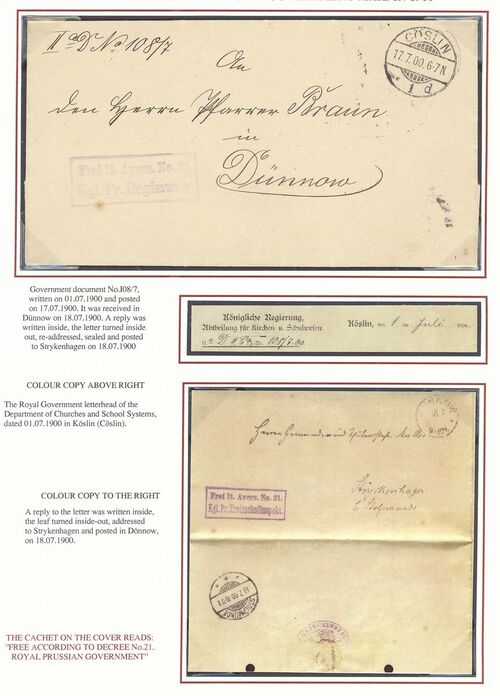 II a D No 108/7
CÖSLIN
17.7.00.6-7N.
1 d
An
den Herrn Pfarrer Braun
in
Dünnow
Frei lt. Avers. No. 21.
Kgl. Pr. Regierung
Government document No.I08/7,
written on 01.07.1900 and posted
on 17.07.1900. It was received in
Dünnow on 18.07.1900. A reply was
written inside, the letter turned inside
out, re-addressed, sealed and posted
to Strykenhagen on 18.07.1900
Königliche Regierung,
Abtheilung für Kirchen- u. Schulwesen.
Köslin, den 1. Juli 1900.
COLOUR COPY ABOVE RIGHT
The Royal Government letterhead of the
Department of Churches and School Systems,
dated 01.07.1900 in Köslin (Cöslin).
Frei lt. Avers. No. 21.
Kgl. Pr. Kreisschulinspekt.
COLOUR COPY TO THE RIGHT
A reply to the letter was written inside,
the leaf turned inside-out, addressed
to Strykenhagen and posted in Dönnow,
on 18.07.1900.
THE CACHET ON THE COVER READS:
"FREE ACCORDING TO DECREE No.21.
ROYAL PRUSSIAN GOVERNMENT"